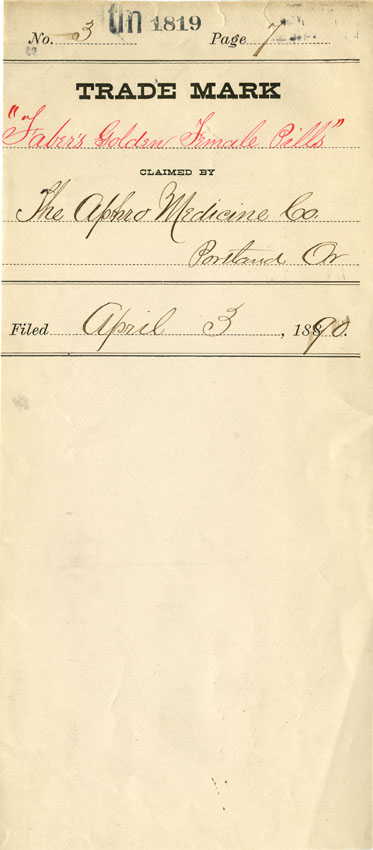 No. 3 tm 1819 Page 7
TRADE MARK
"Faber's Golden Female Pills"
CLAIMED BY
The Aphro Medicine Co.
Portland Or
Filed April 3, 1890.